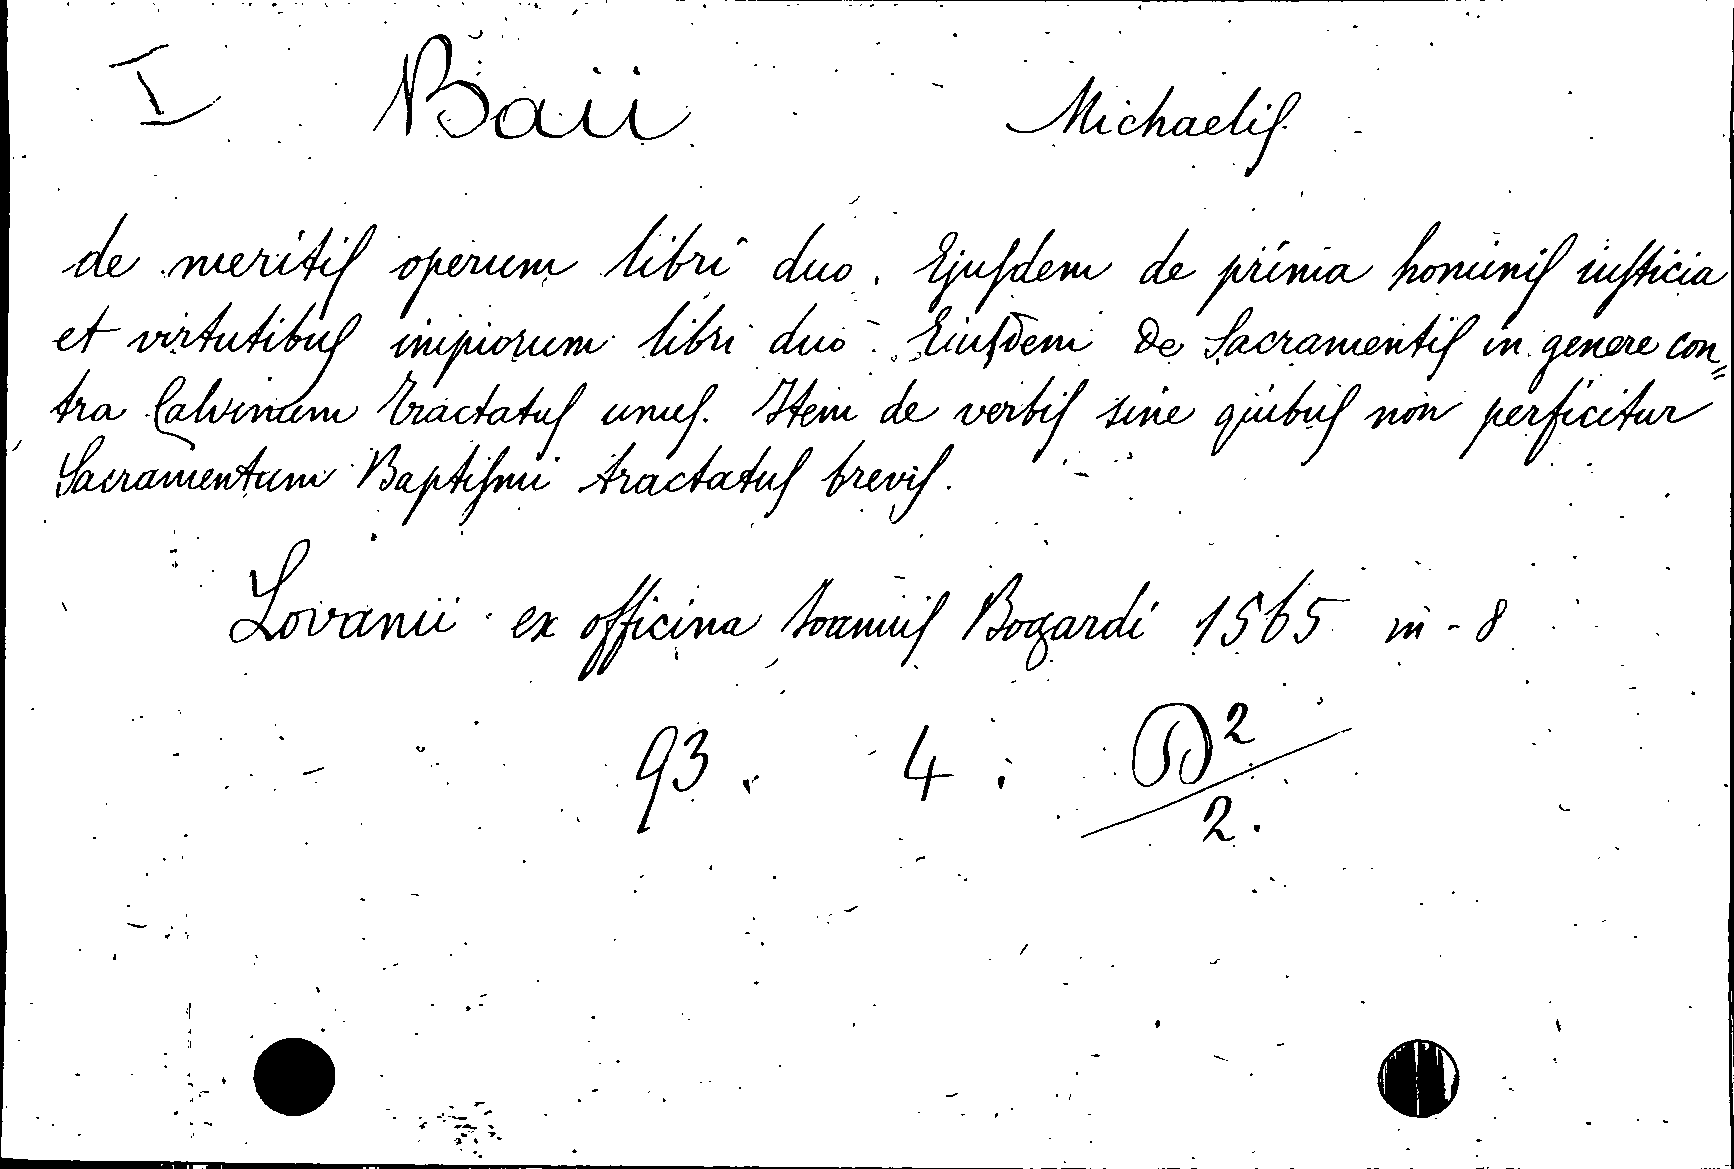 I Baii Michaelis
de meritis operum libri duo. Ejusdem de prima hominis iusticia
et virtutibus impiorum libri duo. Eiusdem de Sacramentis in genere con„
tra Calvinum tractatus unus. Item de verbis sine quibus non perficitur
Sacramentum Baptismi tractatus brevis.
Lovanii ex officina Ioannis Bogardi 1565 in - 8
93. 4. D²/2.